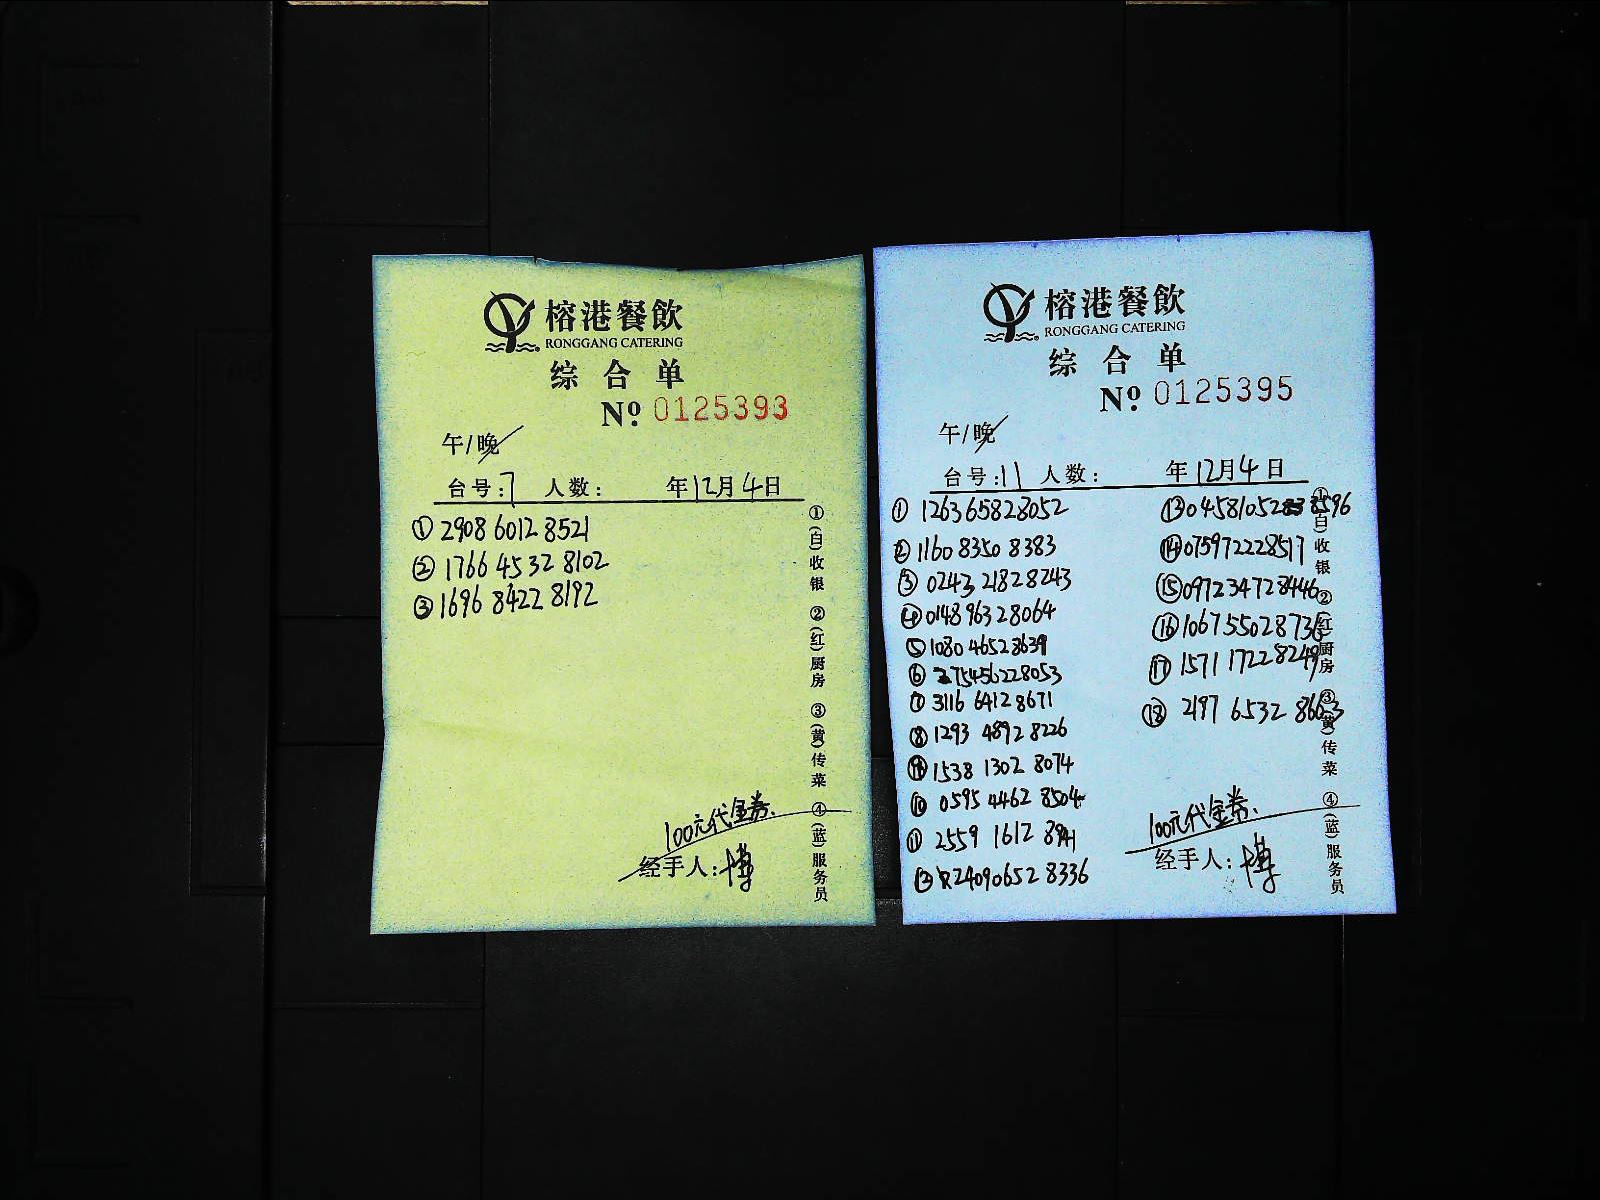 榕港餐飲
RONGGANG CATERING
综合单
Nº: 0125393
午/晚
台号:7 人数: 年12月4日
① 2908 6012 8521
② 1766 4532 8102
③ 1696 8422 8192
100元代金券.
经手人:
①(白)收银 ②(红)厨房 ③(黄)传菜 ④(蓝)服务员
榕港餐飲
RONGGANG CATERING
综合单
Nº: 0125395
午/晚
台号:11 人数: 年12月4日
① 126365828052
② 1160 8350 8383
③ 0243 2182 8243
④ 0148 9632 8064
⑤ 1080 4652 8639
⑥ 275456228053
⑦ 3116 6412 8671
⑧ 1293 4892 8226
1538 1302 8074
⑩ 0595 4462 8504
⑪ 2559 1612
⑫ 24090652 8336
⑬ 04581052 8596
⑭ 075972228517
⑮ 097234728446
⑯ 10675502873
⑰ 1571 1722 8249
⑱ 2197 6532 8663
100元代金券.
经手人:
①(白)收银 ②(红)厨房 ③(黄)传菜 ④(蓝)服务员